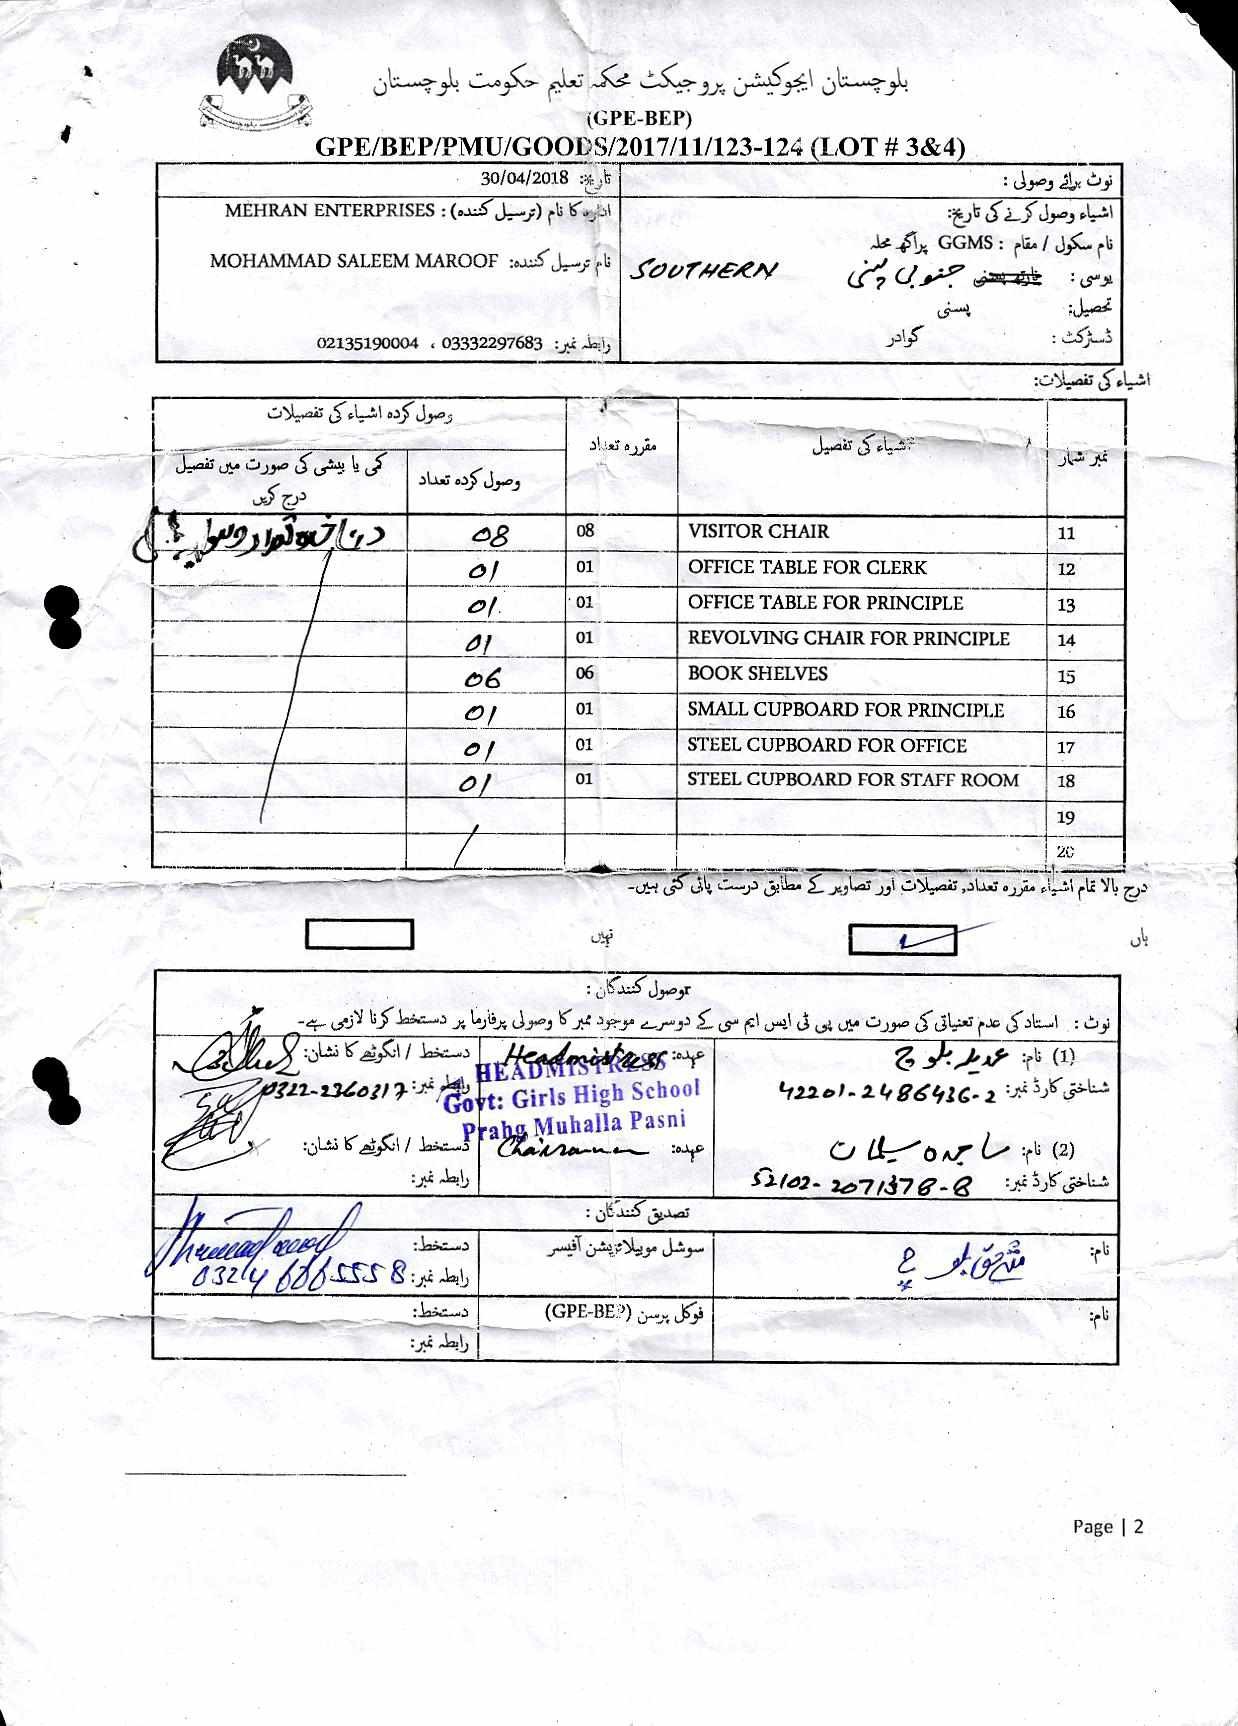 بلوچستان ایجوکیشن پروجیکٹ محکمہ تعلیم حکومت بلوچستان
(GPE-BEP)
GPE/BEP/PMU/GOODS/2017/11/123-124 (LOT # 3&4)
نوٹ برائے وصولی :
تاریخ: 30/04/2018
اشیاء وصول کرنے کی تاریخ:
نام سکول / مقام : GGMS پراگھ محلہ
یوسی : جنوبی پسنی SOUTHERN
تحصیل: پسنی
ڈسٹرکٹ : گوادر
ادارہ کا نام (ترسیل کنندہ) : MEHRAN ENTERPRISES
نام ترسیل کنندہ: MOHAMMAD SALEEM MAROOF
رابطہ نمبر: 03332297683 ، 02135190004
اشیاء کی تفصیلات:
نمبر شمار اشیاء کی تفصیل مقررہ تعداد وصول کردہ اشیاء کی تفصیلات
وصول کردہ تعداد کمی یا بیشی کی صورت میں تفصیل درج کریں
11 VISITOR CHAIR 08 08
12 OFFICE TABLE FOR CLERK 01 01
13 OFFICE TABLE FOR PRINCIPLE 01 01
14 REVOLVING CHAIR FOR PRINCIPLE 01 01
15 BOOK SHELVES 06 06
16 SMALL CUPBOARD FOR PRINCIPLE 01 01
17 STEEL CUPBOARD FOR OFFICE 01 01
18 STEEL CUPBOARD FOR STAFF ROOM 01 01
19
20
درج بالا تمام اشیاء مقررہ تعداد, تفصیلات اور تصاویر کے مطابق درست پائی گئی ہیں۔
ہاں نہیں
وصول کنندگان :
نوٹ : استاد کی عدم تعنیاتی کی صورت میں پی ٹی ایس ایم سی کے دوسرے موجود ممبر کا وصولی پرفارما پر دستخط کرنا لازمی ہے۔
(1) نام: عدیلہ بلوچ عہدہ: Headmistress دستخط / انگوٹھے کا نشان:
شناختی کارڈ نمبر: 42201-2486436-2 رابطہ نمبر: 0322-2360317
HEADMISTRESS
Govt: Girls High School
Prahg Muhalla Pasni
(2) نام: ساجدہ عہدہ: Chairman دستخط / انگوٹھے کا نشان:
شناختی کارڈ نمبر: 52102-2071378-8 رابطہ نمبر:
تصدیق کنندگان :
نام: بلوچ سوشل موبیلائزیشن آفیسر دستخط:
رابطہ نمبر:
نام: فوکل پرسن (GPE-BEP) دستخط:
رابطہ نمبر:
Page | 2